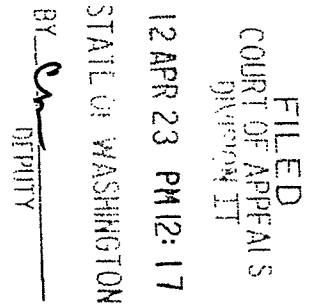 FILED
COURT OF APPEALS
DIVISION II
12 APR 23 PM 12: 17
STATE OF WASHINGTON
BY
DEPUTY